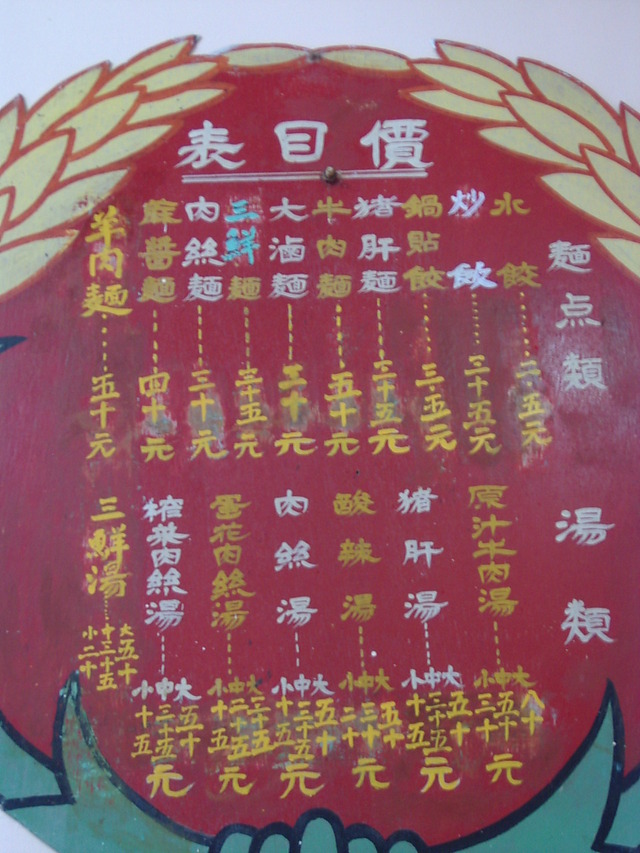 價目表
麵点類
水餃 二·五元
炒飯 三十五元
鍋貼餃 三·五元
猪肝麵 三十五元
牛肉麵 五十元
大滷麵 三十元
三鮮麵 三十五元
肉絲麵 三十元
麻醬麵 四十元
羊肉麵 五十元
湯類
原汁牛肉湯 大八十 中五十 小三十 元
猪肝湯 大五十 中三十五 小十五 元
酸辣湯 大五十 中三十 小二十 元
肉絲湯 大五十 中三十五 小十五 元
蛋花肉絲湯 大三十五 中二十五 小十五 元
榨菜肉絲湯 大五十 中三十五 小十五 元
三鮮湯 大五十 中三十五 小二十